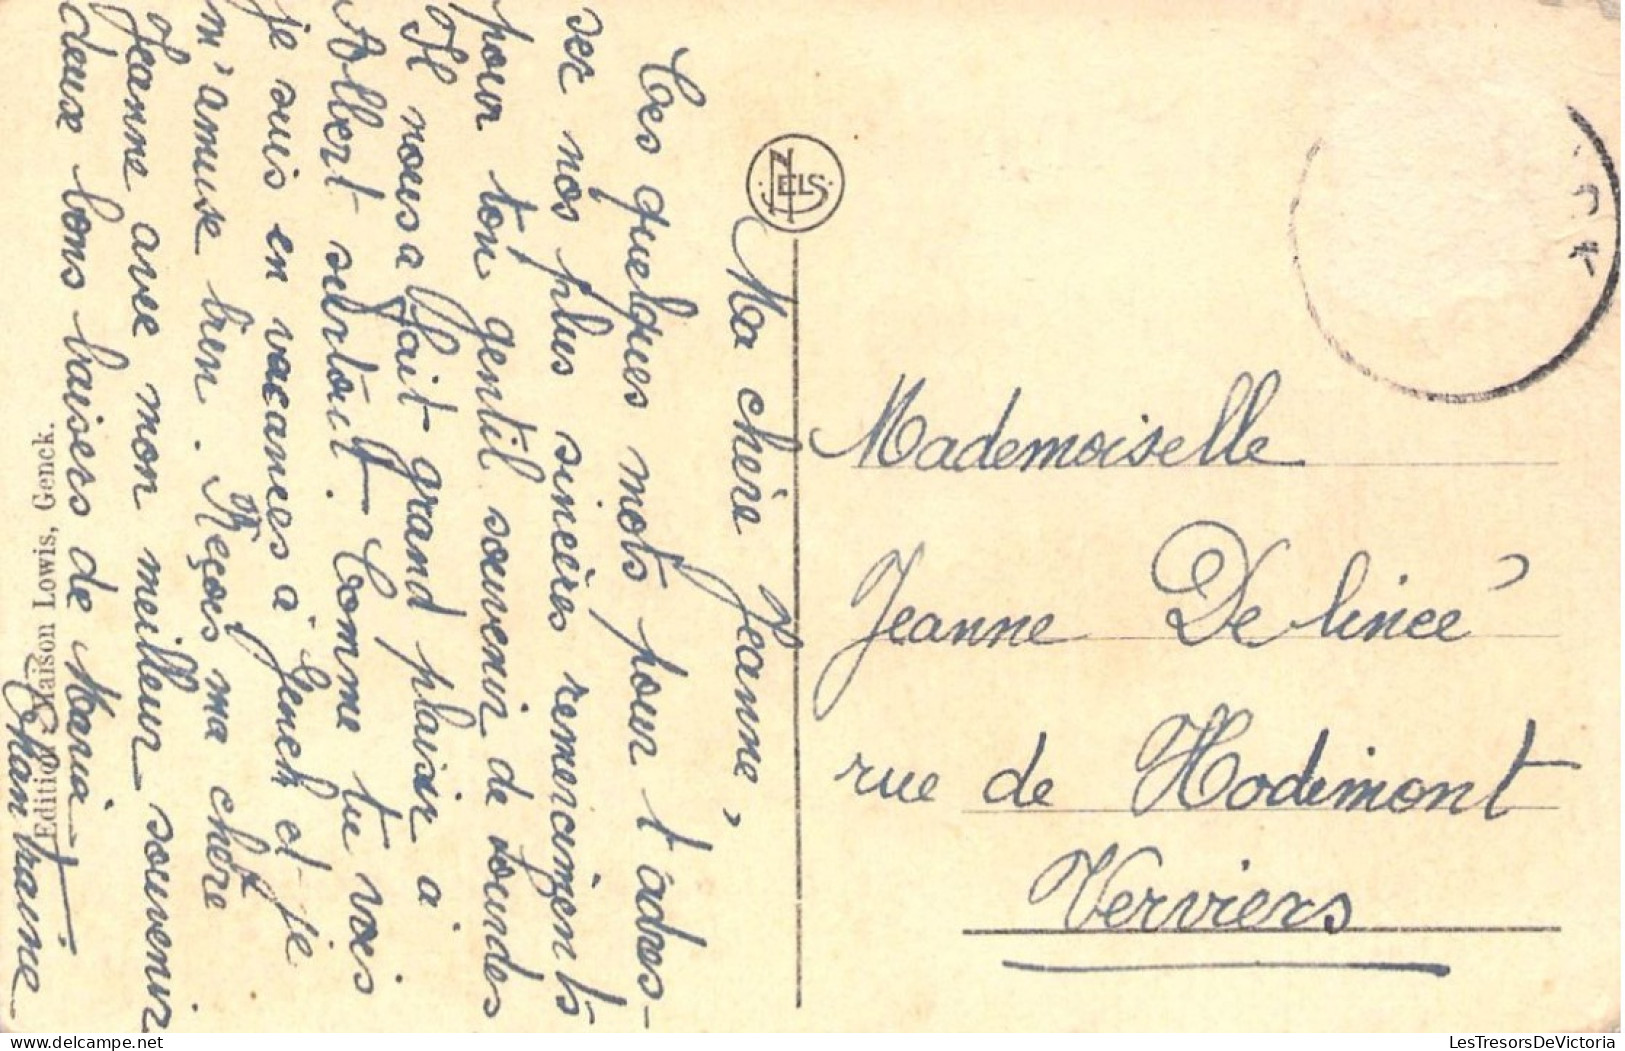 Ma chère Jeanne,
Ces quelques mots pour t'adres-
ser nos plus sincères remerciments
pour ton gentil souvenir de Lourdes
Il nous a fait grand plaisir à
Albert surtout. Comme tu vois
je suis en vacances à Genck et je
m'amuse bien. Reçois ma chère
Jeanne avec mon meilleur souvenir
deux bons baisers de Maria T.
Chantraine
Edition Maison Lowis, Genck.
NELS
Mademoiselle
Jeanne Delincé
rue de Hodimont
Verviers
LesTresorsDeVictoria
www.delcampe.net